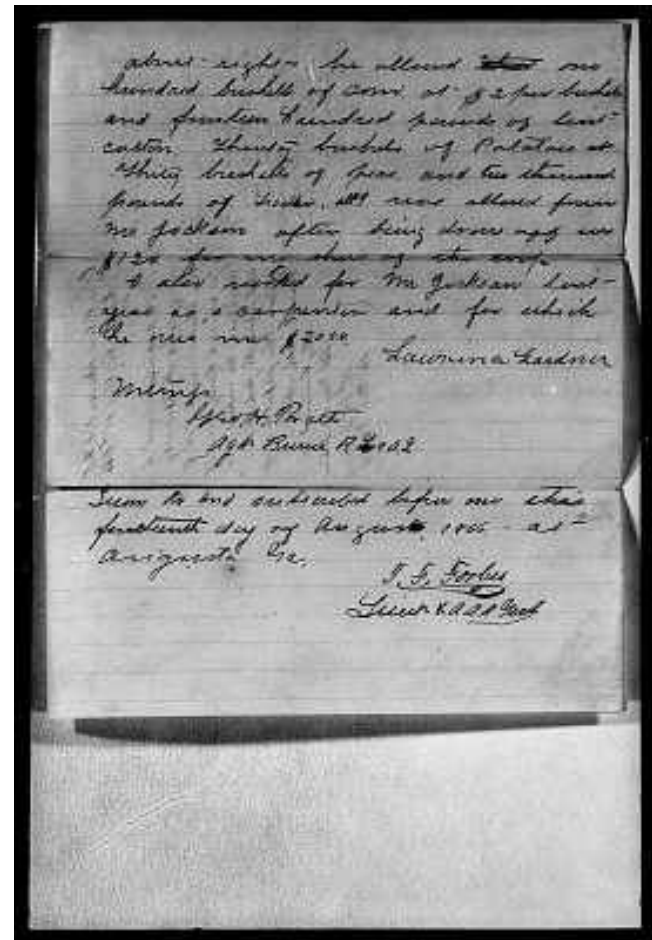 above rights he allowed one
hundred bushels of corn at $2 per bushel
and fourteen hundred pounds of lint
cotton Thirty bushels of Potatoes at
Thirty bushels of peas and two thousand
pounds of fodder. all was allowed from
Mr Jackson after being drove off was
$120 for my share of the crop.
I also worked for Mr Jackson last
year as a carpenter and for which
he owes me $20.00
Gardner
Witness
Geo H. Pratt
Agt Bureau R F & A L
Sworn to and subscribed before me this
fourteenth day of August, 1866 at
Augusta Ga.